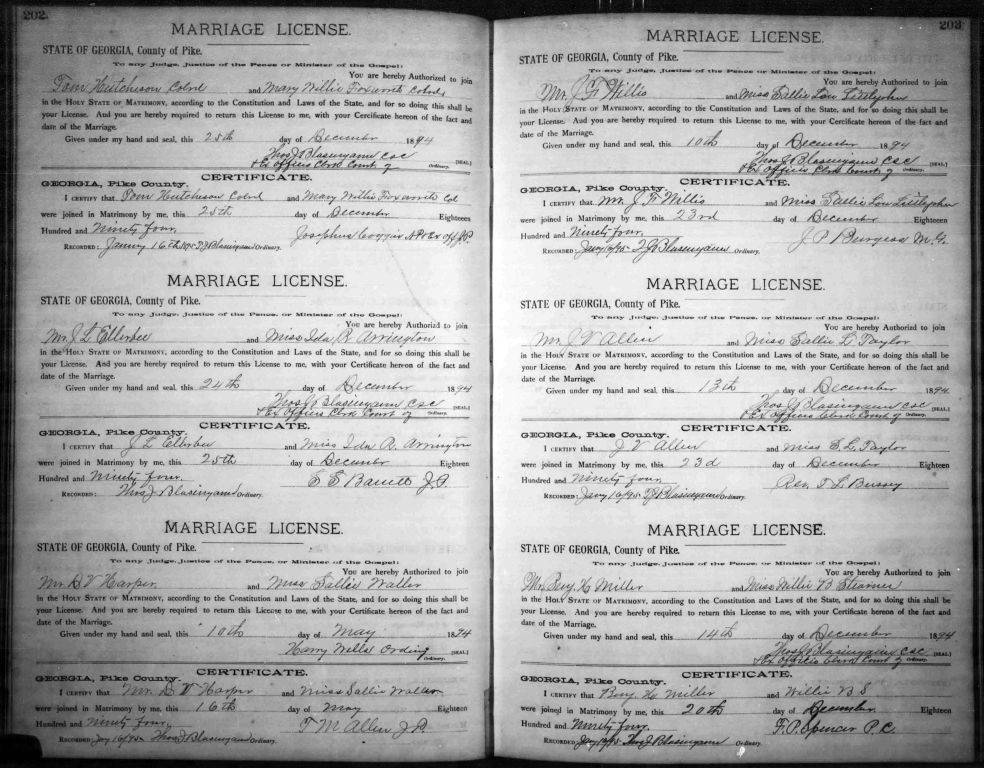 202.
MARRIAGE LICENSE.
STATE OF GEORGIA, County of Pike.
To any Judge, Justice of the Peace or Minister of the Gospel:
You are hereby Authorized to join
Tom Hutcheson Colrd and Mary Willis Colrd
in the HOLY STATE OF MATRIMONY, according to the Constitution and Laws of the State, and for so doing this shall be
your License. And you are hereby required to return this License to me, with your Certificate hereon of the fact and
date of the Marriage.
Given under my hand and seal, this 25th day of December 1894
Thos J Blasingame CSC
& Ex Officio Clrk Court of Ordinary. [SEAL.]
CERTIFICATE.
GEORGIA, Pike County.
I CERTIFY that Tom Hutcheson Colrd and Mary Willis Col
were joined in Matrimony by me, this 25th day of December Eighteen
Hundred and Ninety four. Josephus Coggin N.P. & Ex off J.P.
RECORDED: 16th 1895 T J Blasingame Ordinary.
MARRIAGE LICENSE.
STATE OF GEORGIA, County of Pike.
To any Judge, Justice of the Peace, or Minister of the Gospel:
You are hereby Authorized to join
Mr. J L Ellerbee and Miss Ida R Arrington
in the HOLY STATE OF MATRIMONY, according to the Constitution and Laws of the State, and for so doing this shall be
your License. And you are hereby required to return this License to me, with your Certificate hereon of the fact and
date of the Marriage.
Given under my hand and seal, this 24th day of December 1894
Thos J Blasingame CSC
& Ex Officio Clrk Court of Ordinary. [SEAL.]
CERTIFICATE.
GEORGIA, Pike County.
I CERTIFY that J. L. Ellerbee and Miss Ida R. Arrington
were joined in Matrimony by me, this 25th day of December Eighteen
Hundred and Ninety four. E E Barrett J.P.
RECORDED: Thos J Blasingame Ordinary.
MARRIAGE LICENSE.
STATE OF GEORGIA, County of Pike.
To any Judge, Justice of the Peace, or Minister of the Gospel:
You are hereby Authorized to join
Mr. D V Harper and Miss Sallie Waller
in the HOLY STATE OF MATRIMONY, according to the Constitution and Laws of the State, and for so doing this shall be
your License. And you are hereby required to return this License to me, with your Certificate hereon of the fact and
date of the Marriage.
Given under my hand and seal, this 10th day of May 1894
Harry Wells Ordiny Ordinary. [SEAL]
CERTIFICATE.
GEORGIA, Pike County.
I CERTIFY that Mr. D V Harper and Miss Sallie Waller
were joined in Matrimony by me, this 16th day of May Eighteen
Hundred and Ninety four, T M Allen J.P.
RECORDED: Jany 16/95 Thos J Blasingame Ordinary.
203
MARRIAGE LICENSE.
STATE OF GEORGIA, County of Pike.
To any Judge, Justice of the Peace or Minister of the Gospel:
You are hereby Authorized to join
Mr. J F Willis and Miss Sallie Lou Littlejohn
in the HOLY STATE OF MATRIMONY, according to the Constitution and Laws of the State, and for so doing this shall be
your License. And you are hereby required to return this License to me, with your Certificate hereon of the fact and
date of the Marriage.
Given under my hand and seal, this 10th day of December 1894
Thos J Blasingame CSC
& Ex Officio Clerk Court of Ordinary. [SEAL]
CERTIFICATE.
GEORGIA, Pike County.
I CERTIFY that Mr. J F Willis and Miss Sallie Lou Littlejohn
were joined in Matrimony by me, this 23rd day of December Eighteen
Hundred and Ninety four. J. P. Burgess M.G.
RECORDED: Jany 16/95 T J Blasingame Ordinary.
MARRIAGE LICENSE.
STATE OF GEORGIA, County of Pike.
To any Judge, Justice of the Peace, or Minister of the Gospel:
You are hereby Authorized to join
Mr. J V Allen and Miss Sallie L. Taylor
in the HOLY STATE OF MATRIMONY, according to the Constitution and Laws of the State, and for so doing this shall be
your License. And you are hereby required to return this License to me, with your Certificate hereon of the fact and
date of the Marriage.
Given under my hand and seal, this 13th day of December 1894
Thos J Blasingame CSC
& Ex Officio Clerk Court of Ordinary. [SEAL.]
CERTIFICATE.
GEORGIA, Pike County.
I CERTIFY that J V Allen and Miss S. L. Taylor
were joined in Matrimony by me, this 23d day of December Eighteen
Hundred and Ninety four. Rev. T. L. Bussey
RECORDED: Jany 16/95 T J Blasingame Ordinary.
MARRIAGE LICENSE.
STATE OF GEORGIA, County of Pike.
To any Judge, Justice of the Peace, or Minister of the Gospel:
You are hereby Authorized to join
Mr. Benj. H. Miller and Miss Willie B
in the HOLY STATE OF MATRIMONY, according to the Constitution and Laws of the State, and for so doing this shall be
your License. And you are hereby required to return this License to me, with your Certificate hereon of the fact and
date of the Marriage.
Given under my hand and seal, this 14th day of December 1894
Thos J Blasingame CSC
& Ex Officio Clerk Court of Ordinary. [SEAL]
CERTIFICATE.
GEORGIA, Pike County.
I CERTIFY that Benj. H. Miller and Willie B S
were joined in Matrimony by me, this 20th day of December Eighteen
Hundred and Ninety four. F. P. Spencer P.C.
RECORDED: Jany 16/95 Thos J Blasingame Ordinary.